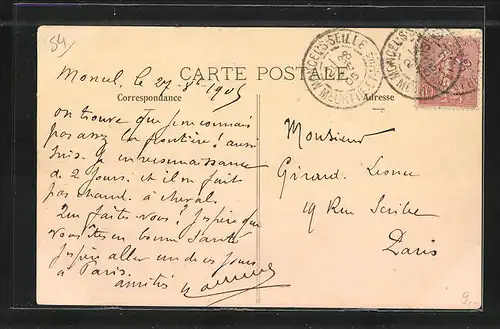 54
CARTE POSTALE
Correspondance
Adresse
MONCEL-S-SEILLE
MEURTHE
Moncel, le 27 1905
on trouve que je ne connais
pas assez la frontière! aussi
suis-je en reconnaissance
de 2 jours, et il ne fait
pas chaud à cheval.
Que faites vous? J'espère que
vous êtes en bonne santé
J'espère aller un de ces jours
à Paris.
amitiés
Monsieur
Girard
19 Rue Scribe
Paris